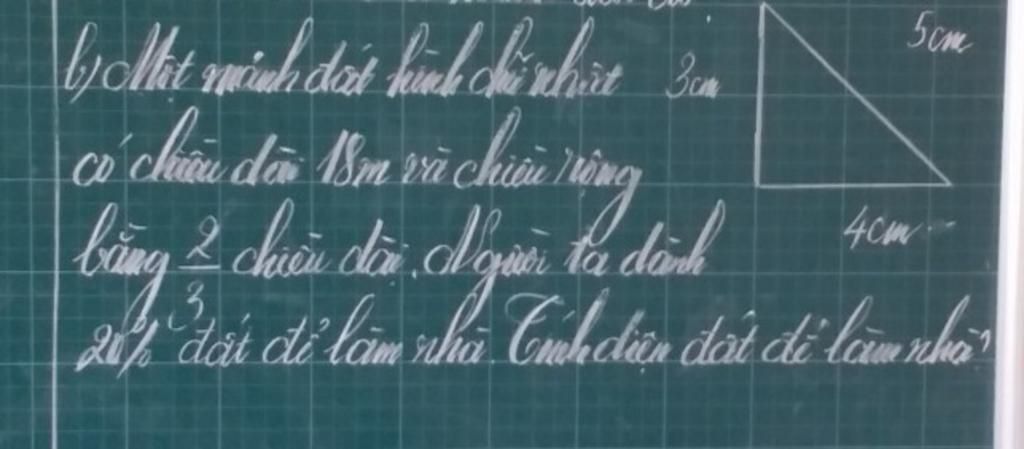 b) Một mảnh đất hình chữ nhật
3cm
5cm
có chiều dài 18m và chiều rộng
bằng 2/3 chiều dài. Người ta dành
4cm
20% đất để làm nhà. Tính diện đất để làm nhà?